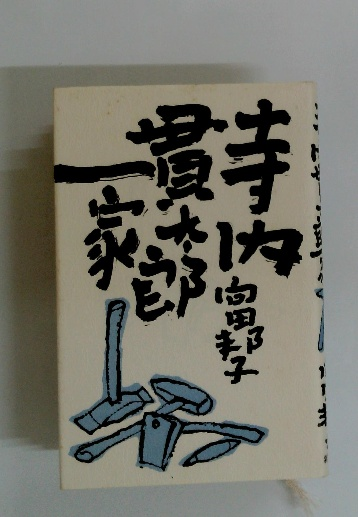 寺内
貫太郎
一家
向田邦子